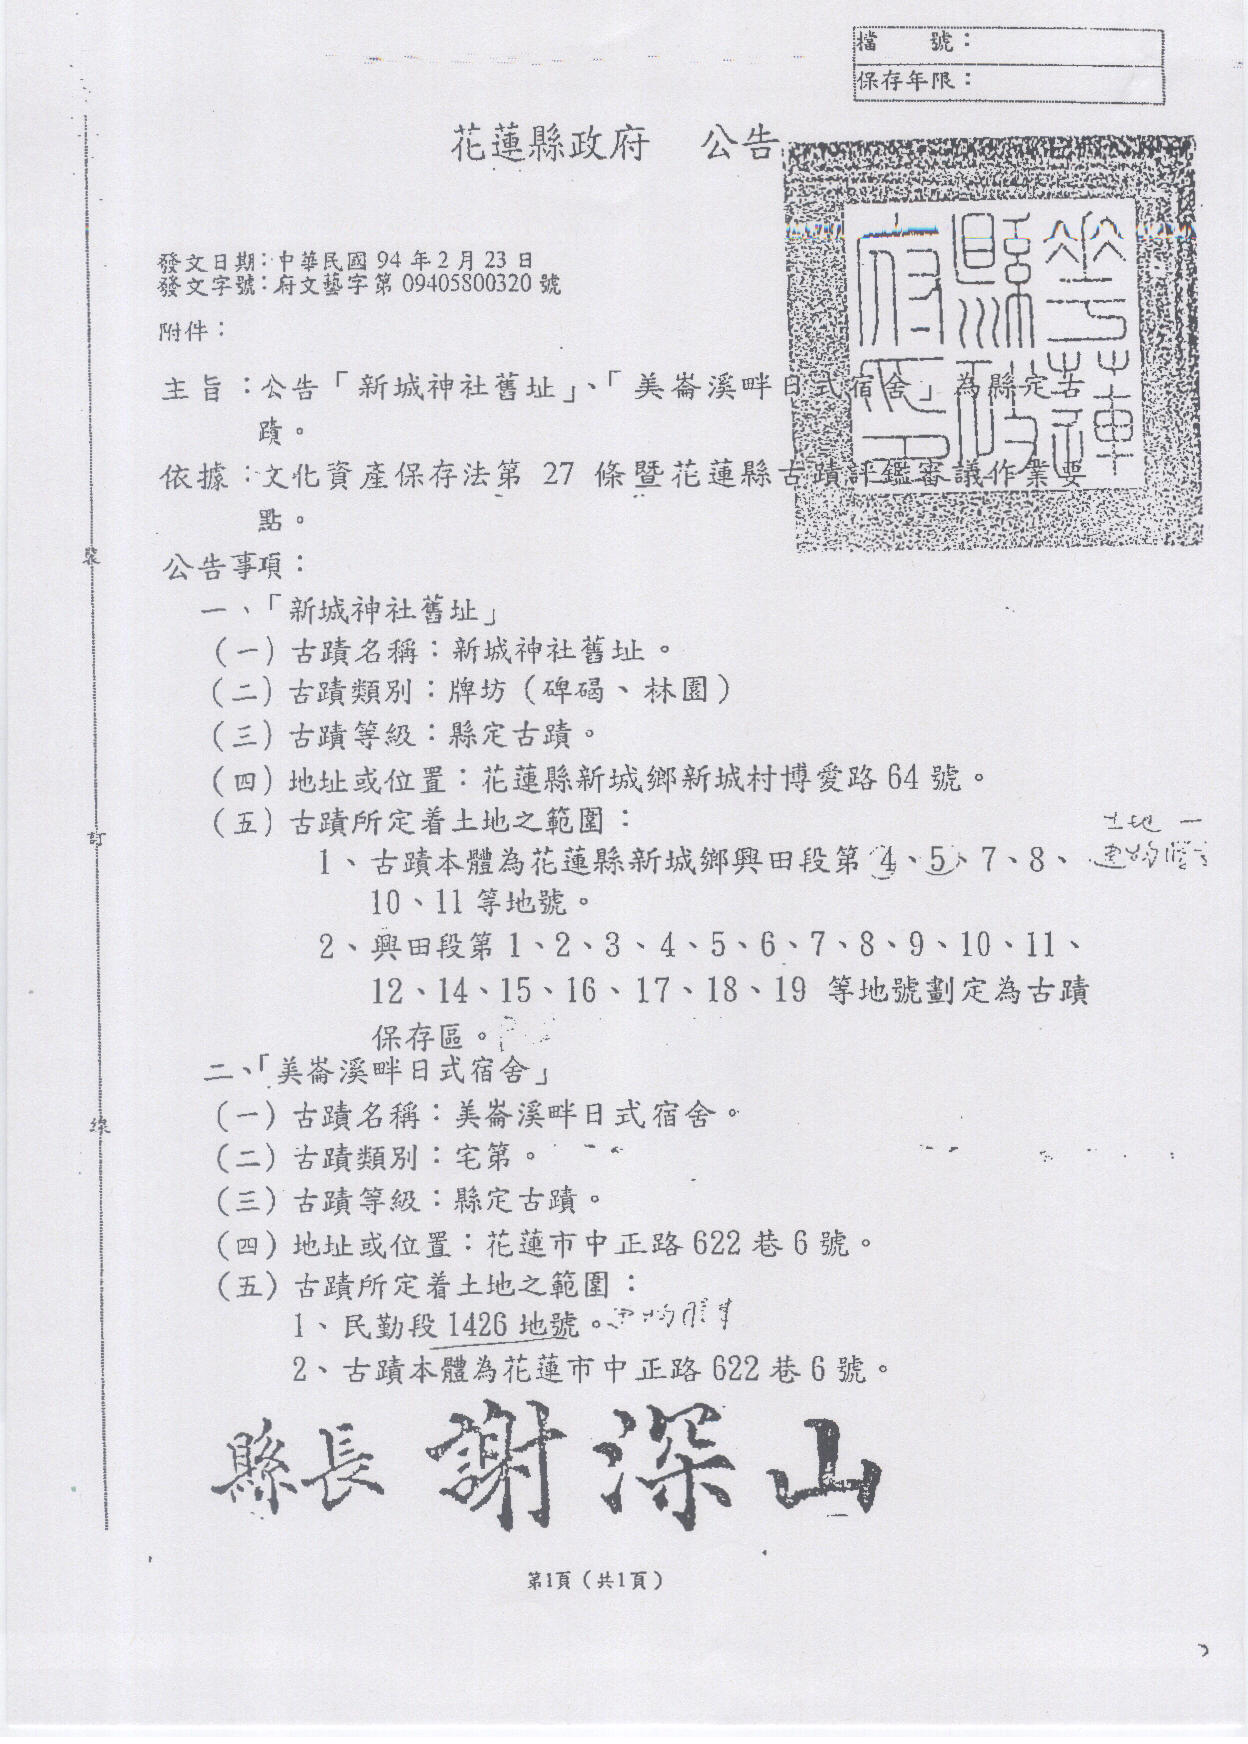 檔　　號：
保存年限：
花蓮縣政府　公告
發文日期：中華民國 94 年 2 月 23 日
發文字號：府文藝字第 09405800320 號
附件：
主旨：公告「新城神社舊址」、「美崙溪畔日式宿舍」為縣定古
蹟。
依據：文化資產保存法第 27 條暨花蓮縣古蹟評鑑審議作業要
點。
公告事項：
一、「新城神社舊址」
（一）古蹟名稱：新城神社舊址。
（二）古蹟類別：牌坊（碑碣、林園）
（三）古蹟等級：縣定古蹟。
（四）地址或位置：花蓮縣新城鄉新城村博愛路 64 號。
（五）古蹟所定着土地之範圍：
土地
1、古蹟本體為花蓮縣新城鄉興田段第 4、5、7、8、
10、11 等地號。
2、興田段第 1、2、3、4、5、6、7、8、9、10、11、
12、14、15、16、17、18、19 等地號劃定為古蹟
保存區。
二、「美崙溪畔日式宿舍」
（一）古蹟名稱：美崙溪畔日式宿舍。
（二）古蹟類別：宅第。
（三）古蹟等級：縣定古蹟。
（四）地址或位置：花蓮市中正路 622 巷 6 號。
（五）古蹟所定着土地之範圍：
1、民勤段 1426 地號。
2、古蹟本體為花蓮市中正路 622 巷 6 號。
縣長 謝深山
第1頁（共1頁）
裝
訂
線
花蓮縣政府印